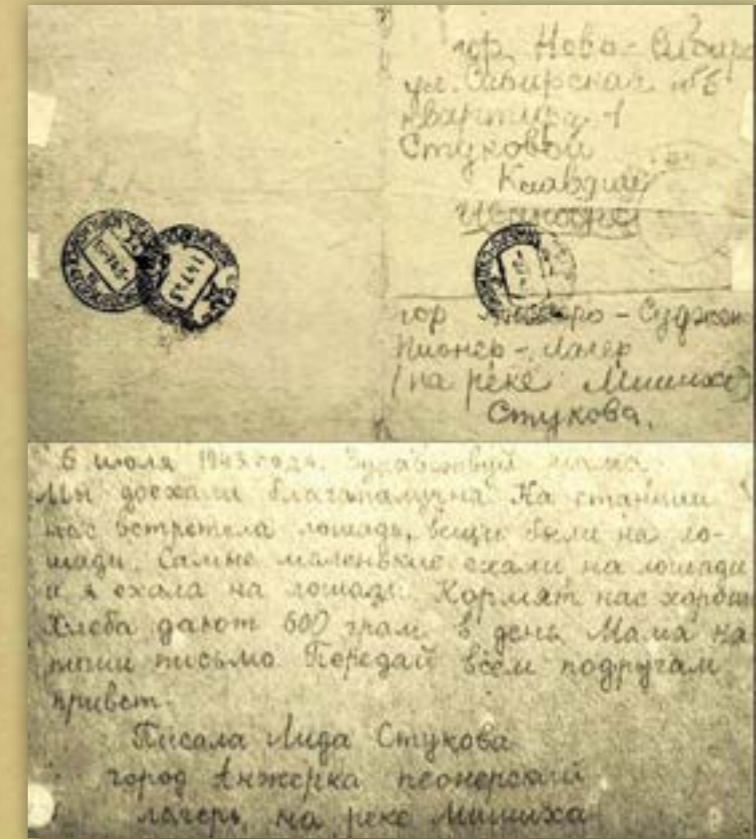 гор. Ново-Сибир
ул. Сибирская №
квартира 1
Стуковой
Клавдии
Ивановне
гор Анжеро-Суджен
Пионер-Лагер
(на реке Мишихе)
Стукова.
6 июля 1943 года. Здравствуй мама
Мы доехали благапалучна На станции
нас встретела лошадь, вещи были на ло-
шади. Самые маленькие ехали на лошади
и я ехала на лошади. Кормят нас хорошо
Хлеба дают 600 грам в день Мама на
пиши письмо Передай всем подругам
привет.
Писала Лида Стукова
город Анжерка пеонерский
лагерь на реке Мишиха